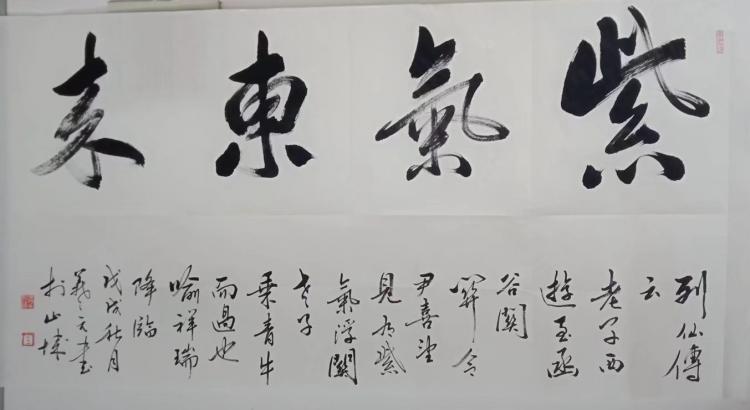 紫氣東來
列仙傳
云
老子西
遊至函
谷關
關令
尹喜望
見有紫
氣浮關
老子
乘青牛
而過也
喻祥瑞
降臨
戊戌秋月
義天書
於山城